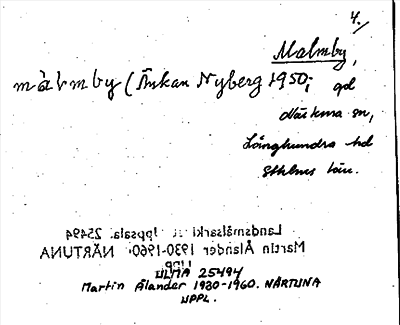 4.
Malmby,
màlmby (Änkan Nyberg 1950; gd
Närtuna sn,
Långhundra hd
Sthlms län.
Landsmålsarki et Uppsala. 25494
Martin Ålander 1930-1960. NÄRTUNA
UPPL.
ULMA 25494
Martin Ålander 1930-1960. NÄRTUNA
UPPL.